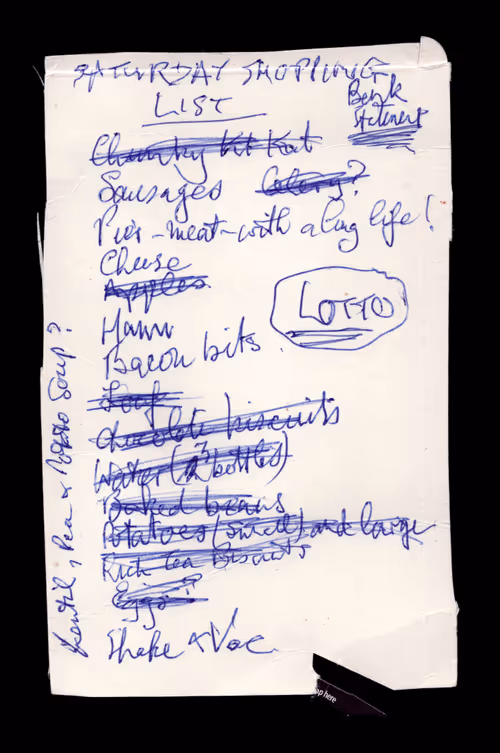 SATURDAY SHOPPING
LIST
Bank
Statement
Chunky Kit Kat
Sausages Celery?
Pies-meat-with a long life!
Cheese
Apples
LOTTO
Ham
Bacon bits.
Loaf
Chocolate biscuits
Water (3 bottles)
Baked beans
Potatoes (small) and large
Rich Tea Biscuits
Eggs?
Shake & Vac
Lentil, Pea & Potato Soup?
op here